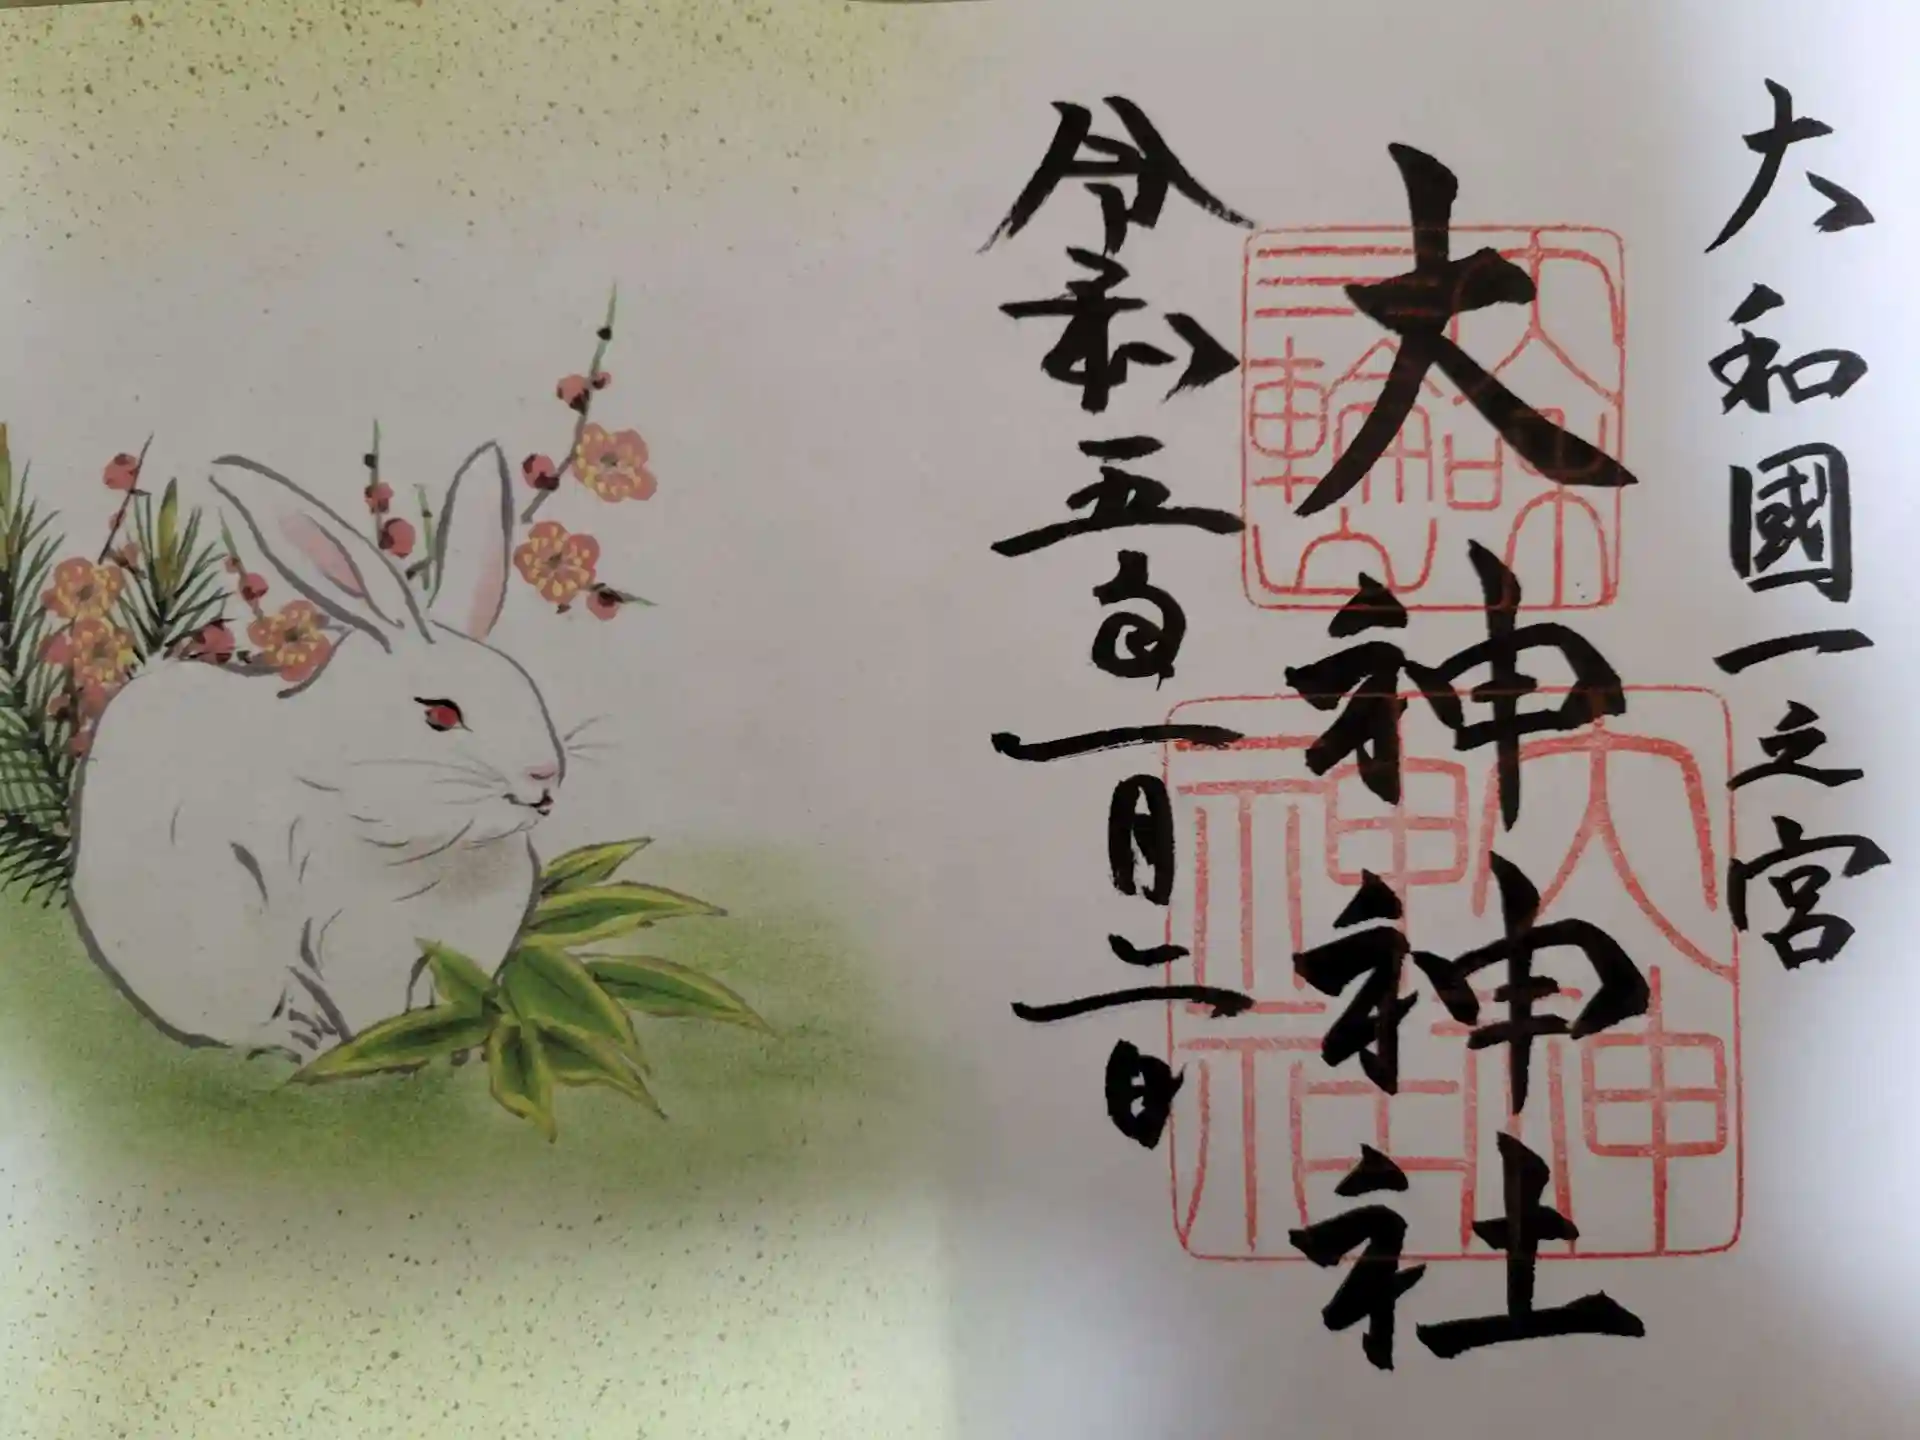 大和國一之宮
大神神社
令和五年一月二日
大和
三輪山
大神
神社